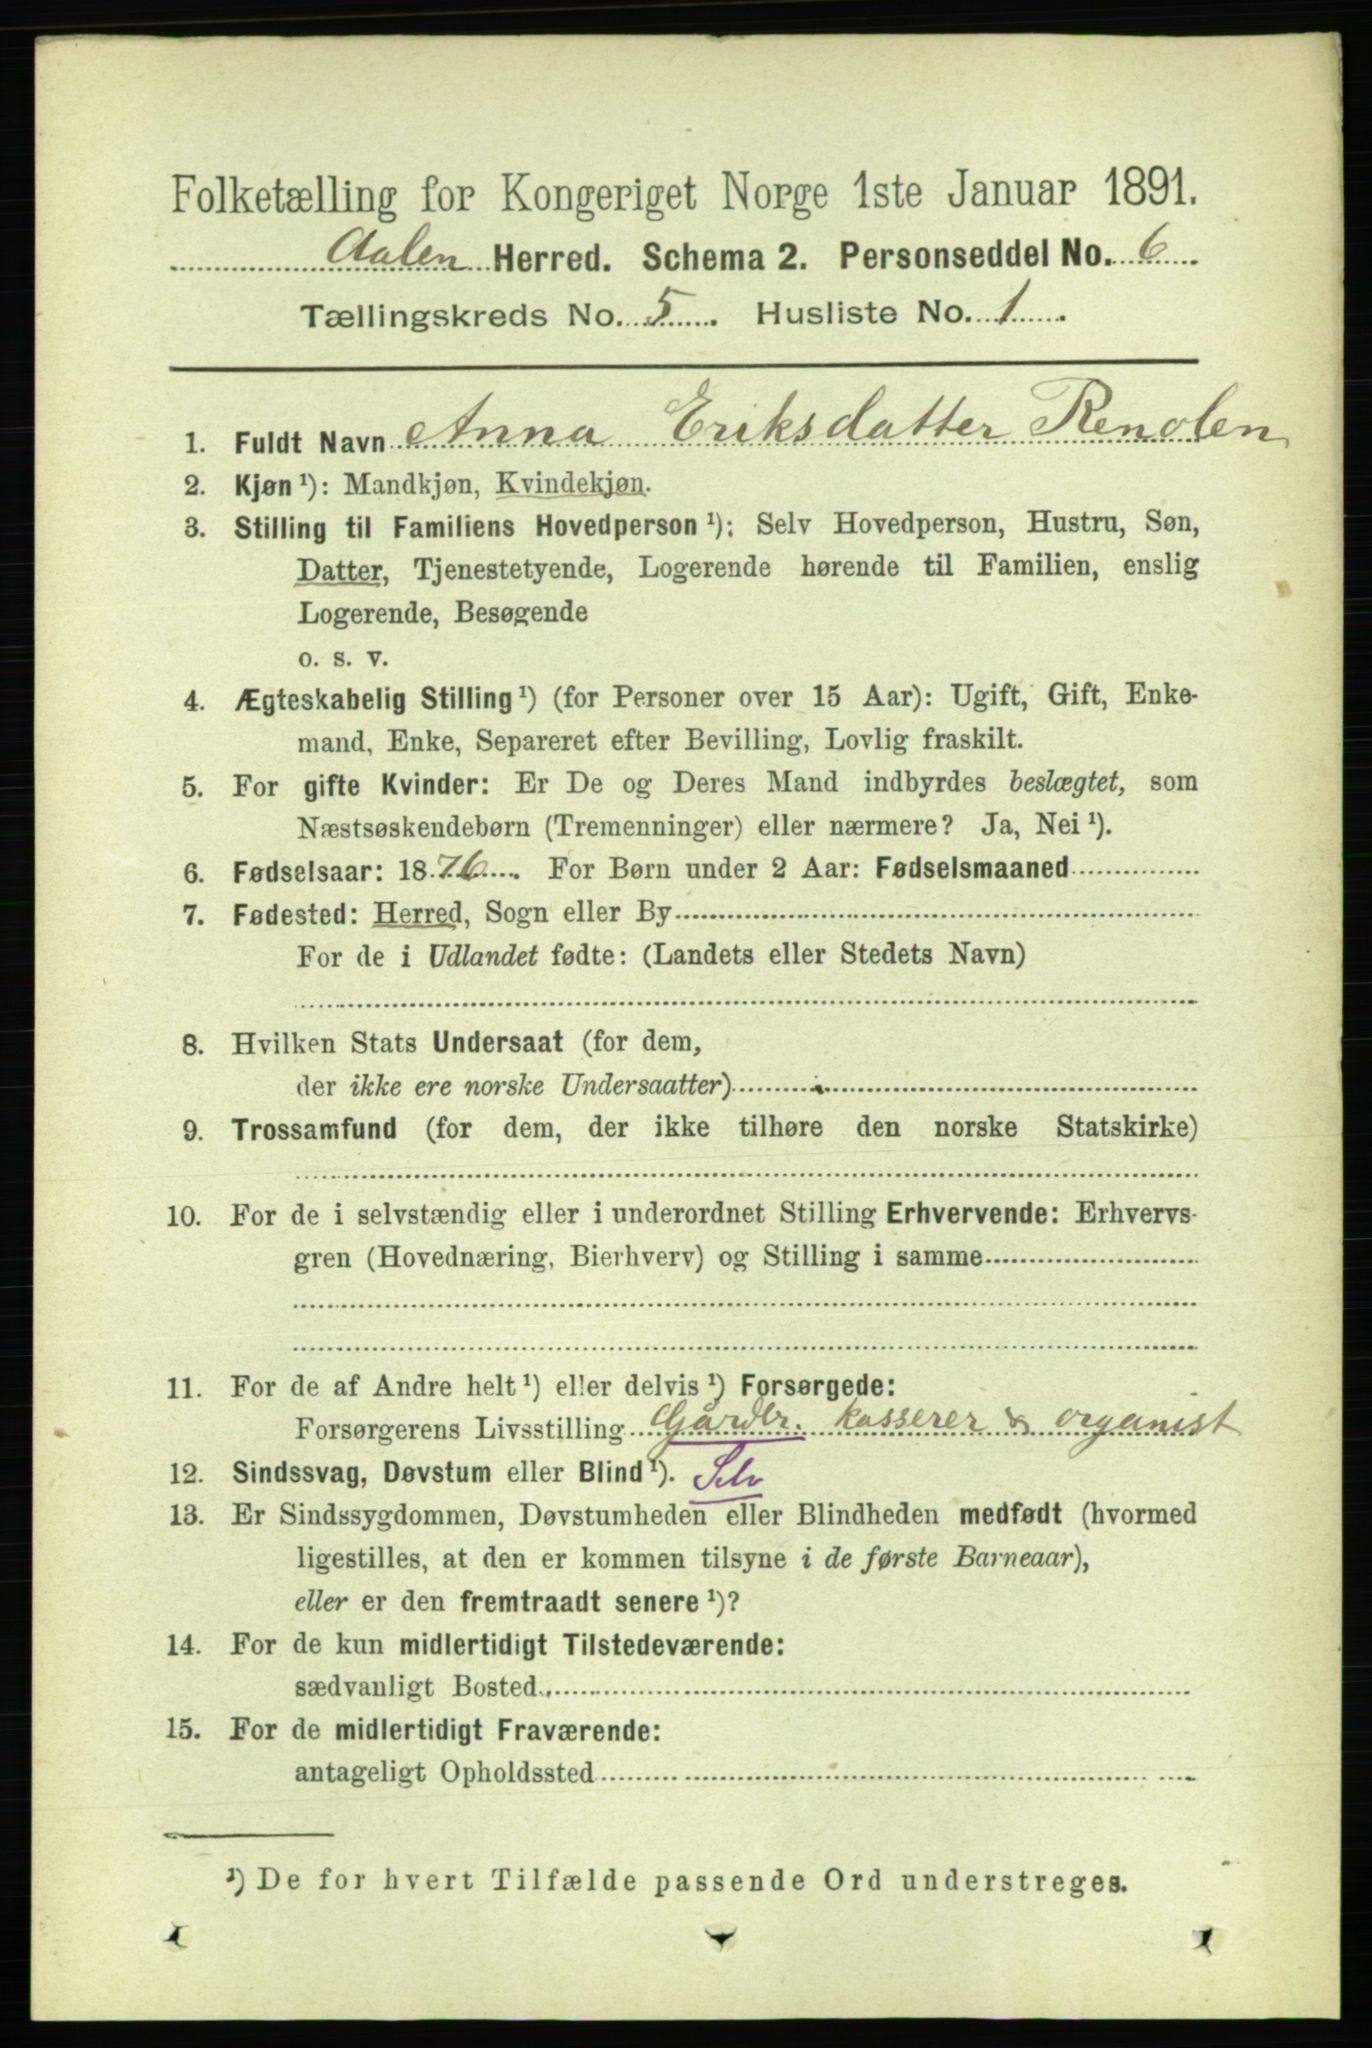 Folketælling for Kongeriget Norge 1ste Januar 1891.
Aalen Herred. Schema 2. Personseddel No. 6
Tællingskreds No. 5. Husliste No. 1.
1. Fuldt Navn Anna Eriksdatter Renolen
2. Kjøn ¹): Mandkjøn, Kvindekjøn.
3. Stilling til Familiens Hovedperson ¹): Selv Hovedperson, Hustru, Søn,
Datter, Tjenestetyende, Logerende hørende til Familien, enslig
Logerende, Besøgende
o. s. v.
4. Ægteskabelig Stilling ¹) (for Personer over 15 Aar): Ugift, Gift, Enke-
mand, Enke, Separeret efter Bevilling, Lovlig fraskilt.
5. For gifte Kvinder: Er De og Deres Mand indbyrdes beslægtet, som
Næstsøskendebørn (Tremenninger) eller nærmere? Ja, Nei ¹).
6. Fødselsaar: 1876. For Børn under 2 Aar: Fødselsmaaned
7. Fødested: Herred, Sogn eller By
For de i Udlandet fødte: (Landets eller Stedets Navn)
8. Hvilken Stats Undersaat (for dem,
der ikke ere norske Undersaatter)
9. Trossamfund (for dem, der ikke tilhøre den norske Statskirke)
10. For de i selvstændig eller i underordnet Stilling Erhvervende: Erhvervs-
gren (Hovednæring, Bierhverv) og Stilling i samme
11. For de af Andre helt ¹) eller delvis ¹) Forsørgede:
Forsørgerens Livsstilling Gårdbr. kasserer & organist
12. Sindssvag, Døvstum eller Blind ¹). Selv
13. Er Sindssygdommen, Døvstumheden eller Blindheden medfødt (hvormed
ligestilles, at den er kommen tilsyne i de første Barneaar),
eller er den fremtraadt senere ¹)?
14. For de kun midlertidigt Tilstedeværende:
sædvanligt Bosted
15. For de midlertidigt Fraværende:
antageligt Opholdssted
¹) De for hvert Tilfælde passende Ord understreges.